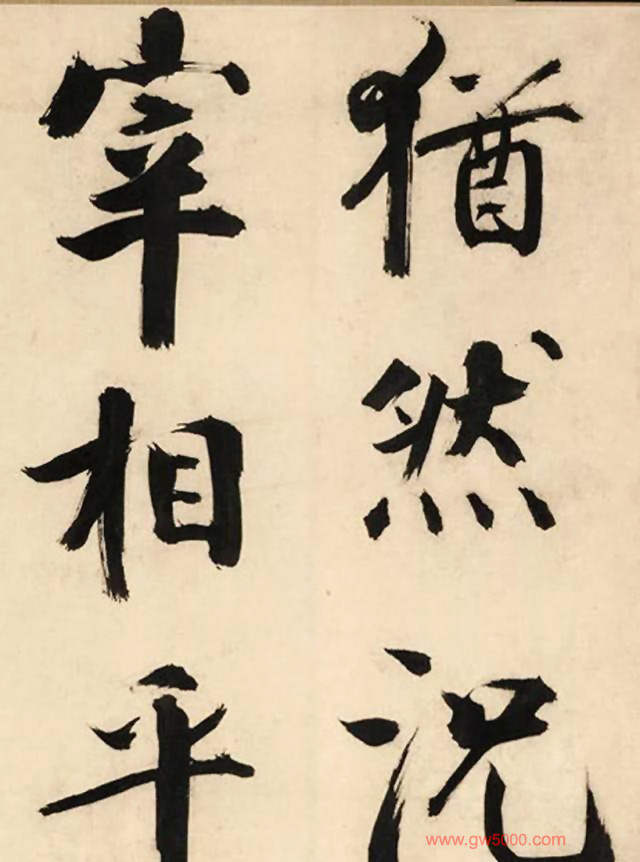 猶然况
宰相平
www.gw5000.com